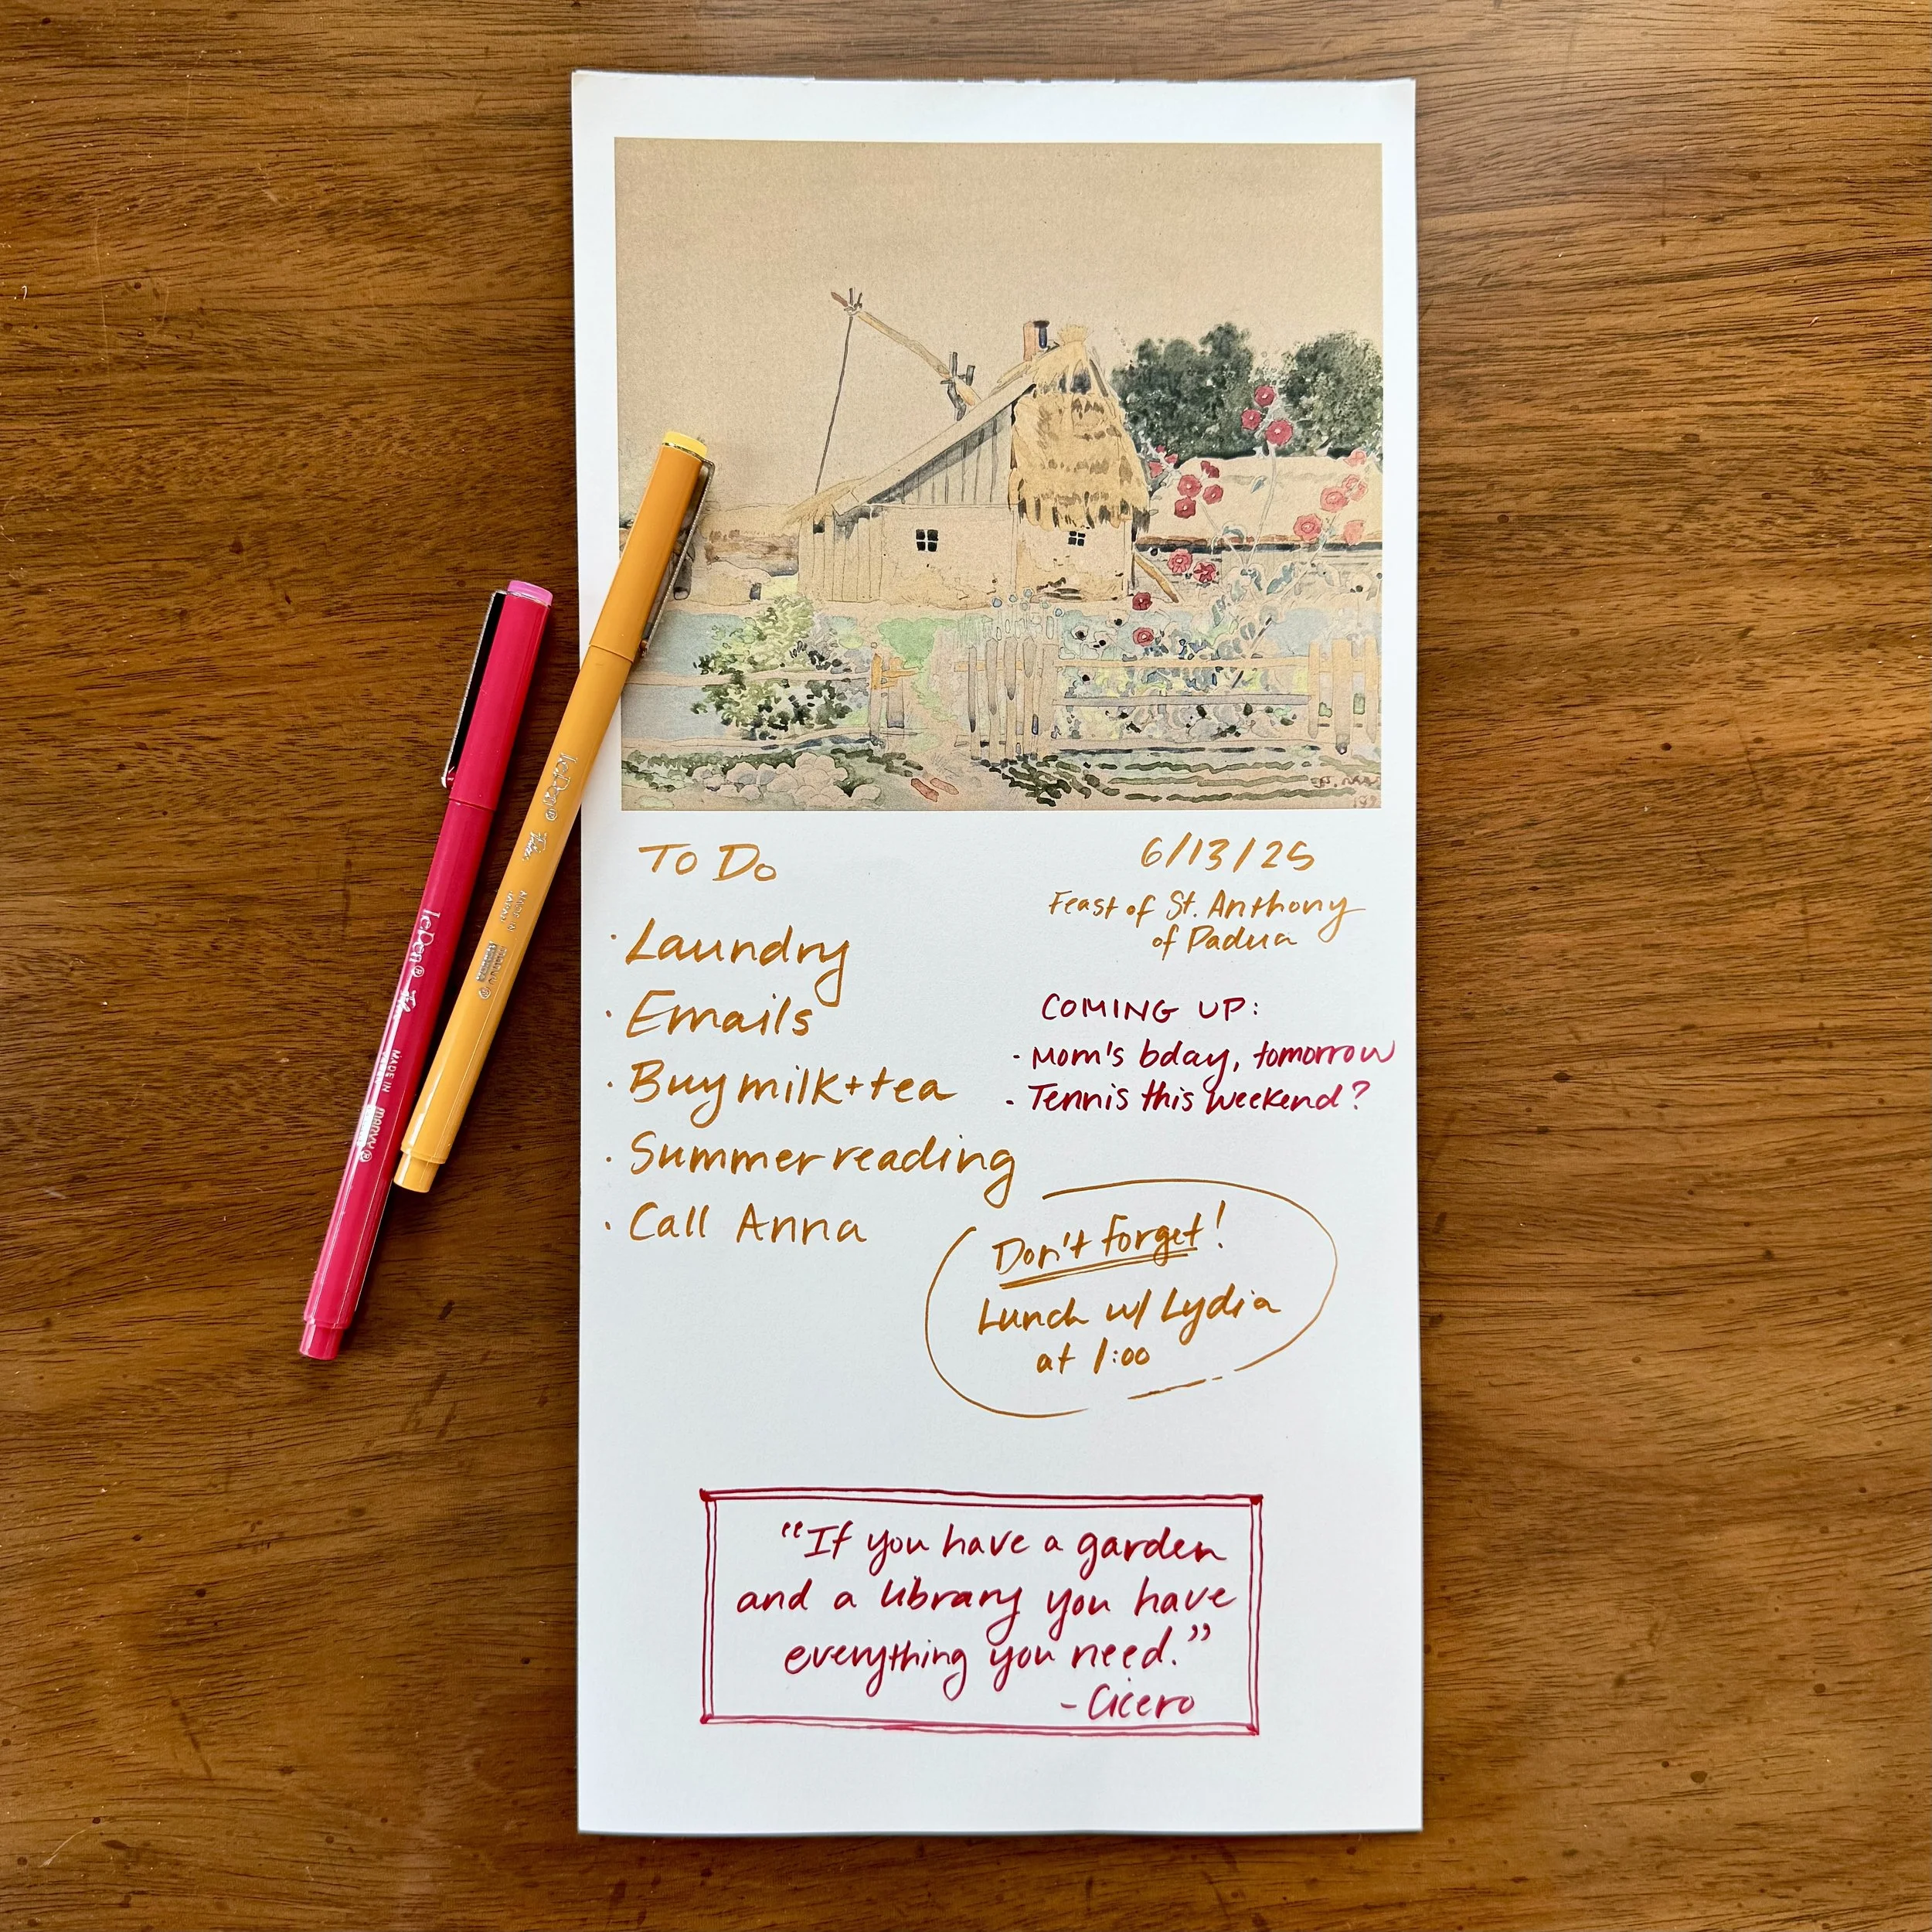 TO DO
· Laundry
· Emails
· Buy milk + tea
· Summer reading
· Call Anna
6/13/25
Feast of St. Anthony
of Padua
COMING UP:
· Mom's bday, tomorrow
· Tennis this weekend?
Don't forget!
Lunch w/ Lydia
at 1:00
"If you have a garden
and a library you have
everything you need."
- Cicero
LePen®
MADE IN
MARVY®
LePen®
MADE IN
JAPAN